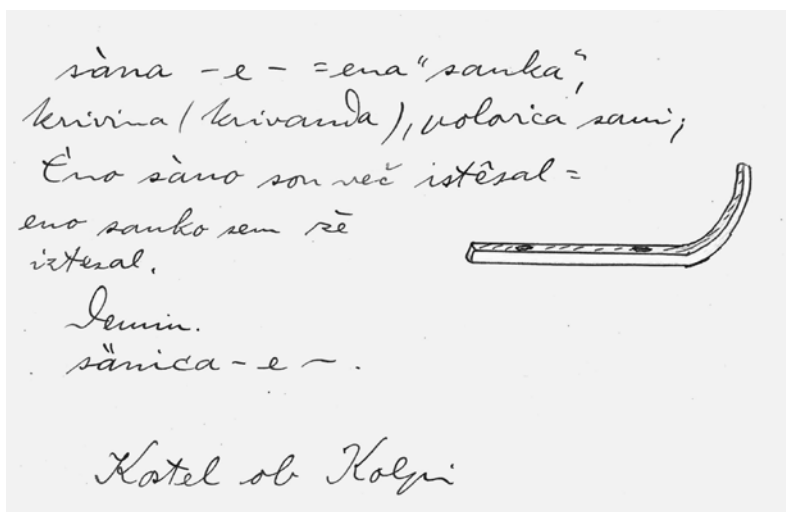 sàna - e - = ena "sanka",
krivina (krivanda), polovica sani;
Èno sàno son več istêsal =
eno sanko sem že
iztesal.
Demin.
sänica - e - .
Kostel ob Kolpi